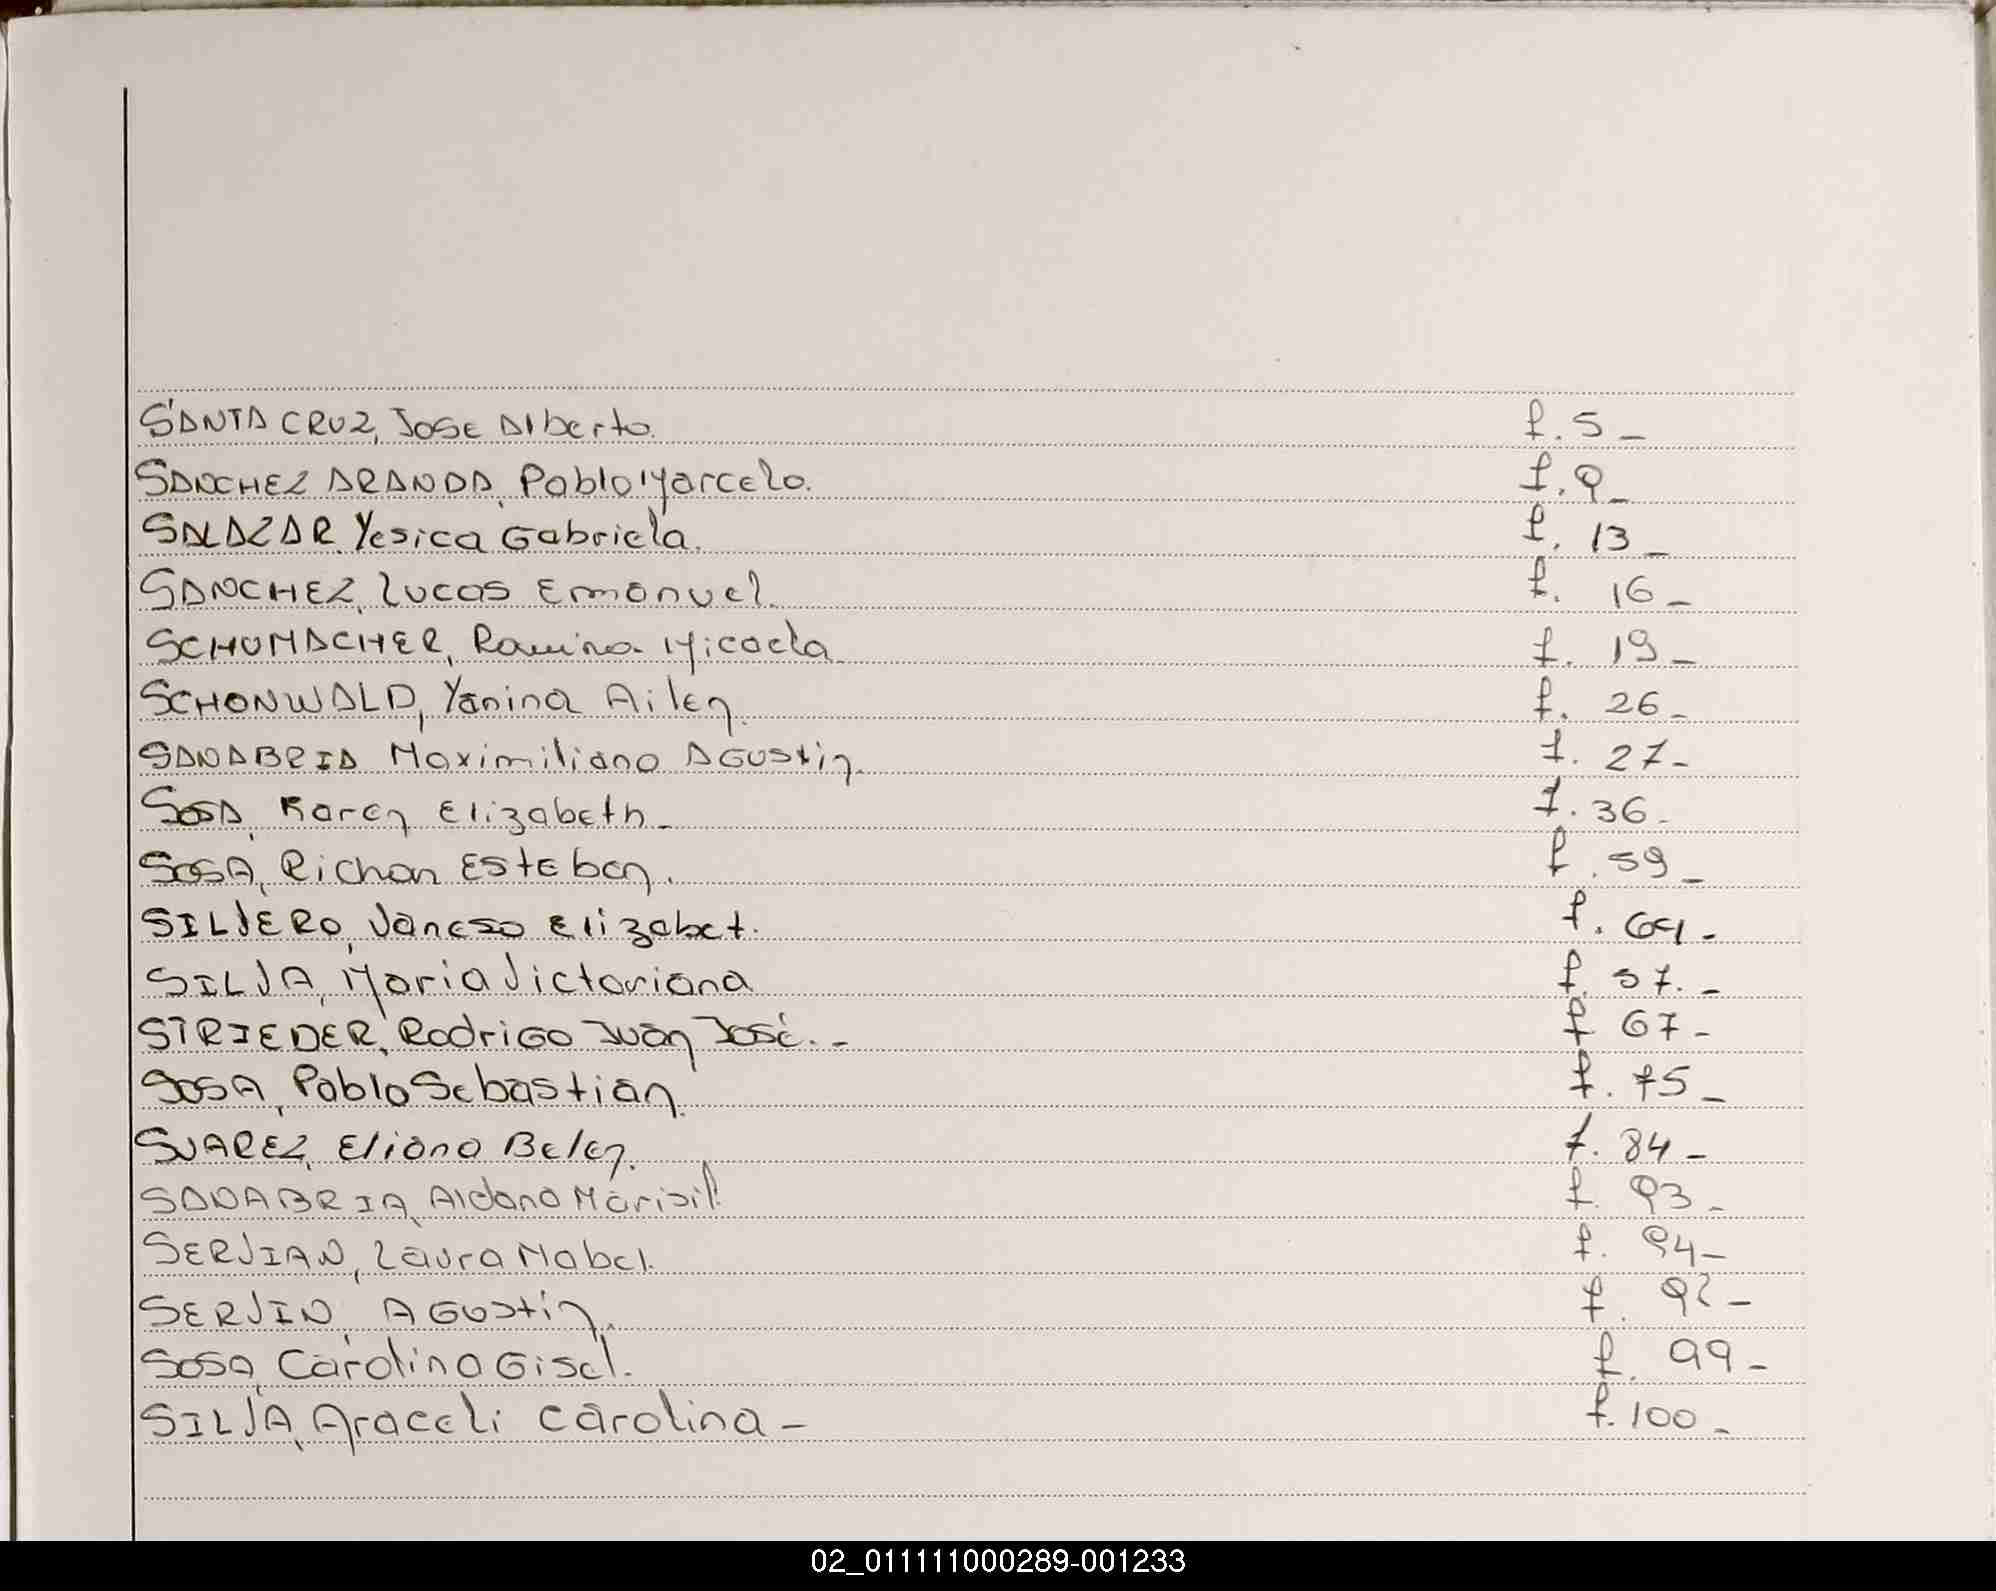 SANTA CRUZ, Jose Alberto. f. 5_
SANCHEZ ARANDA, Pablo Marcelo. f. 9_
SALAZAR, Yesica Gabriela. f. 13_
SANCHEZ, Lucas Emanuel. f. 16_
SCHUMACHER, Ramina Micaela f. 19_
SCHONWALD, Yanina Ailen. f. 26_
SANABRIA Maximiliano Agustin. f. 27_
SOSA, Karen Elizabeth_ f. 36_
SOSA, Richan Esteban. f. 59_
SILVERO, Vanesa Elizabet. f. 64_
SILVA, Maria Victoriana f. 57._
STRIEDER, Rodrigo Juan José._ f. 67_
SOSA, Pablo Sebastian. f. 75_
SUAREZ, Eliana Belen. f. 84_
SANABRIA, Aldana Marisil f. 93_
SERVIAN, Laura Mabel. f. 94_
SERVIN, Agustin. f. 92_
SOSA, Carolina Gisel. f. 99_
SILVA, Araceli Carolina_ f. 100_
02_011111000289-001233